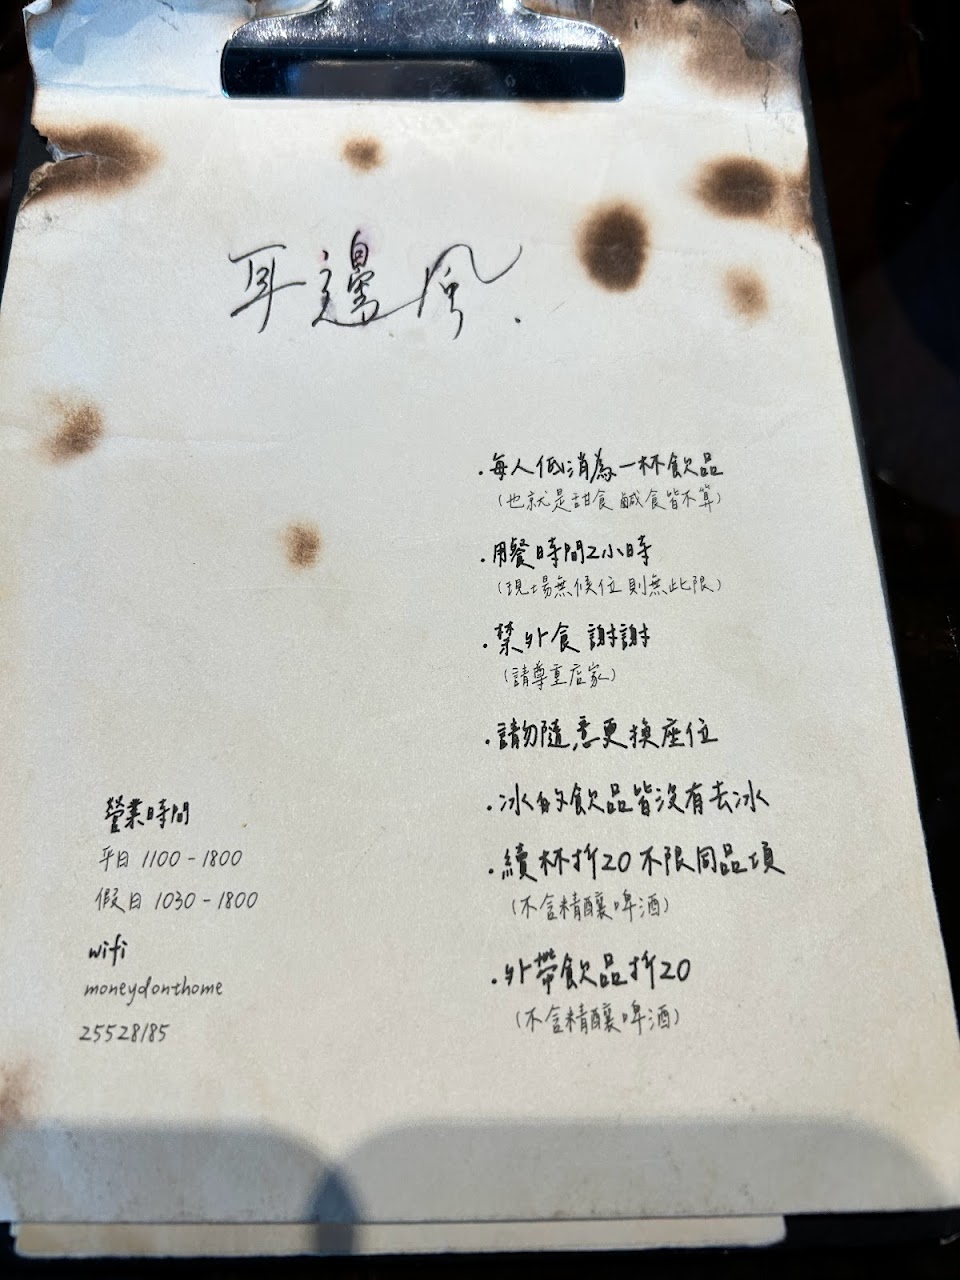 耳邊風.
·每人低消為一杯飲品
(也就是甜食 鹹食皆不算)
·用餐時間2小時
(現場無候位 則無此限)
·禁外食 謝謝
(請尊重店家)
·請勿隨意更換座位
·冰的飲品皆沒有去冰
·續杯折20 不限同品項
(不含精釀啤酒)
·外帶飲品折20
(不含精釀啤酒)
營業時間
平日 1100-1800
假日 1030-1800
wifi
moneydonthome
25528185